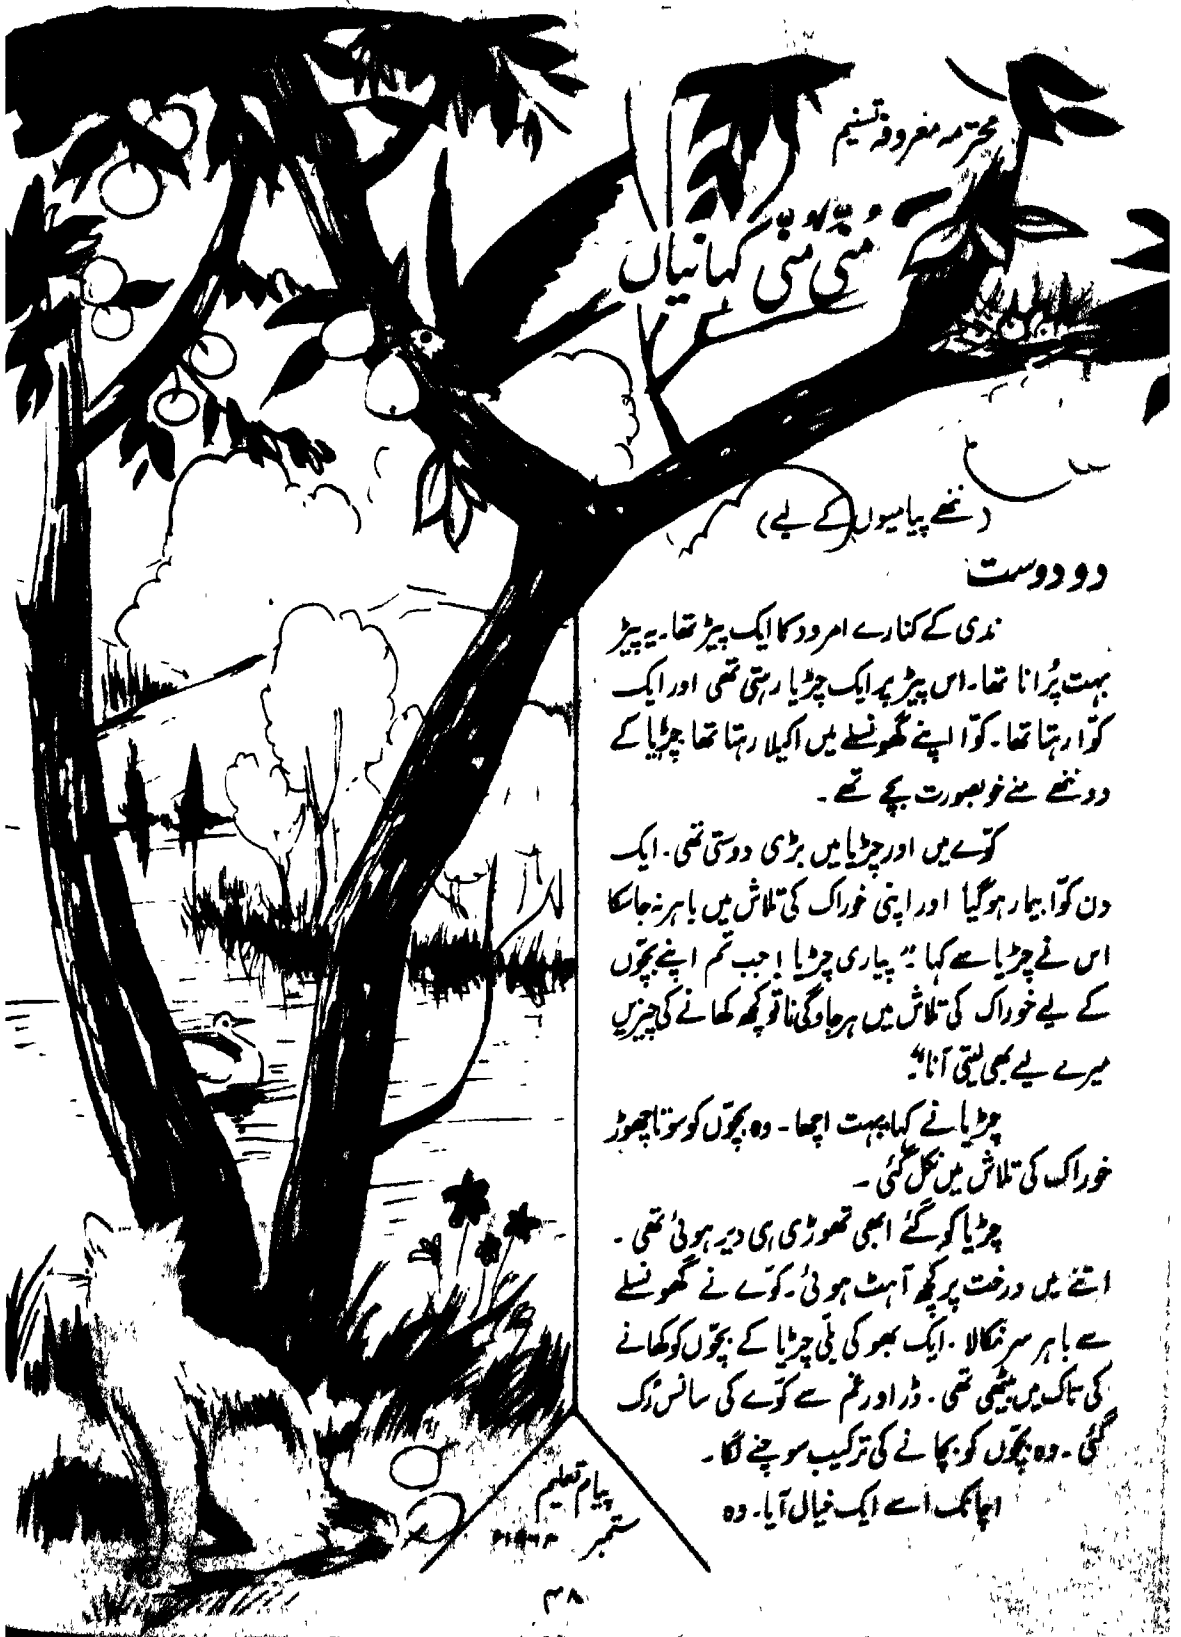 محترمہ معروفہ تسنیم
منّی منّی کہانیاں
(ننھے پیامیوں کے لیے)
دو دوست
ندی کے کنارے امرود کا ایک پیڑ تھا۔ یہ پیڑ
بہت پُرانا تھا۔ اس پیڑ پر ایک چڑیا رہتی تھی اور ایک
کوّا رہتا تھا۔ کوّا اپنے گھونسلے میں اکیلا رہتا تھا چڑیا کے
دو ننھے منے خوبصورت بچے تھے۔
کوّے میں اور چڑیا میں بڑی دوستی تھی۔ ایک
دن کوّا بیمار ہو گیا اور اپنی خوراک کی تلاش میں باہر نہ جا سکا
اس نے چڑیا سے کہا "پیاری چڑیا! جب تم اپنے بچّوں
کے لیے خوراک کی تلاش میں جاوگی نا تو کچھ کھانے کی چیزیں
میرے لیے بھی لیتی آنا"۔
چڑیا نے کہا بہت اچھا۔ وہ بچّوں کو سوتا چھوڑ
خوراک کی تلاش میں نکل گئی۔
چڑیا کو گئے ابھی تھوڑی ہی دیر ہوئی تھی۔
اتنے میں درخت پر کچھ آہٹ ہوئی۔ کوّے نے گھونسلے
سے باہر سر نکالا۔ ایک بھوکی بلّی چڑیا کے بچّوں کو کھانے
کی تاک میں بیٹھی تھی۔ ڈر اور غم سے کوّے کی سانس رُک
گئی۔ وہ بچّوں کو بچانے کی ترکیب سوچنے لگا۔
اچانک اسے ایک خیال آیا۔ وہ
پیام تعلیم
ستمبر
۳۸